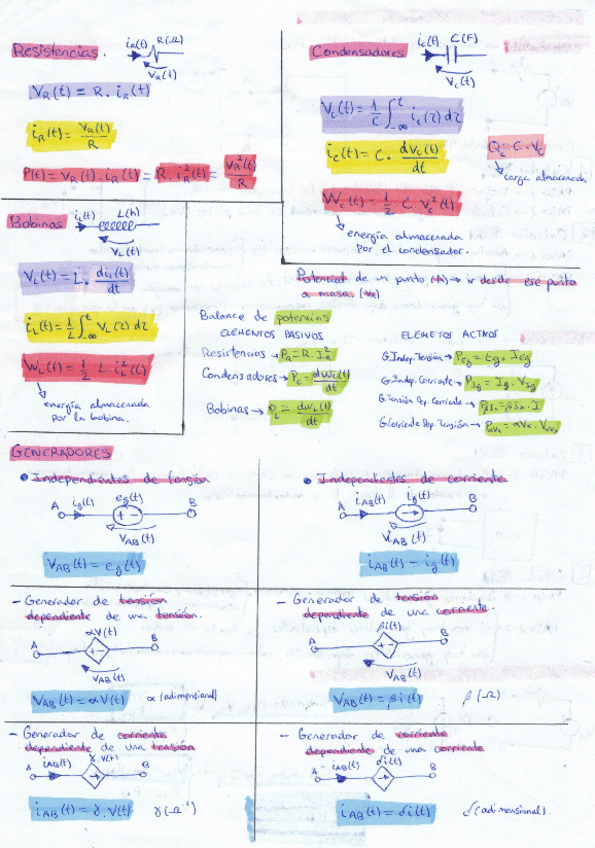 Resistencias.
iR(t) R(Ω)
VR(t)
VR(t) = R · iR(t)
iR(t) = VR(t)/R
P(t) = VR(t) · iR(t) = R · iR²(t) = VR²(t)/R
Condensadores
ic(t) C(F)
Vc(t)
Vc(t) = 1/C ∫_-∞^t ic(τ) dτ
ic(t) = C · dVc(t)/dt
Qc = C · Vc
carga almacenada
Wc(t) = 1/2 C · Vc²(t)
energía almacenada
por el condensador.
Bobinas
iL(t) L(h)
VL(t)
VL(t) = L · diL(t)/dt
iL(t) = 1/L ∫_-∞^t VL(τ) dτ
WL(t) = 1/2 L · iL²(t)
energía almacenada
por la bobina.
Potencial de un punto (A) → ir desde ese punto
a masa. (VA)
Balance de potencias
ELEMENTOS PASIVOS
Resistencias → PR = R · I²R
Condensadores → Pc = dWc(t)/dt
Bobinas → PL = dWL(t)/dt
ELEMETOS ACTIVOS
G.Indep.Tensión → PEg = Eg · IEg
G.Indep.Corriente → PIg = Ig · VIg
G.Tensión Dep. Corriente → PβIx = βIx · I
G.Corriente Dep. Tensión → PαVx = αVx · VαVx
GENERADORES
• Independientes de tensión
A ig(t) eg(t) B
+ -
VAB(t)
VAB(t) = eg(t)
• Independientes de corriente
A iAB(t) ig(t) B
VAB(t)
iAB(t) = ig(t)
- Generador de tensión
dependiente de una tensión.
αV(t)
A + - B
VAB(t)
VAB(t) = αV(t) α (adimensional)
- Generador de tensión
dependiente de una corriente.
βi(t)
A + - B
VAB(t)
VAB(t) = βi(t) β (Ω)
- Generador de corriente
dependiente de una tensión
A iAB(t) γ·V(t) B
iAB(t) = γ·V(t) γ(Ω⁻¹)
- Generador de corriente
dependiente de una corriente
A iAB(t) δi(t) B
iAB(t) = δi(t) δ (adimensional).